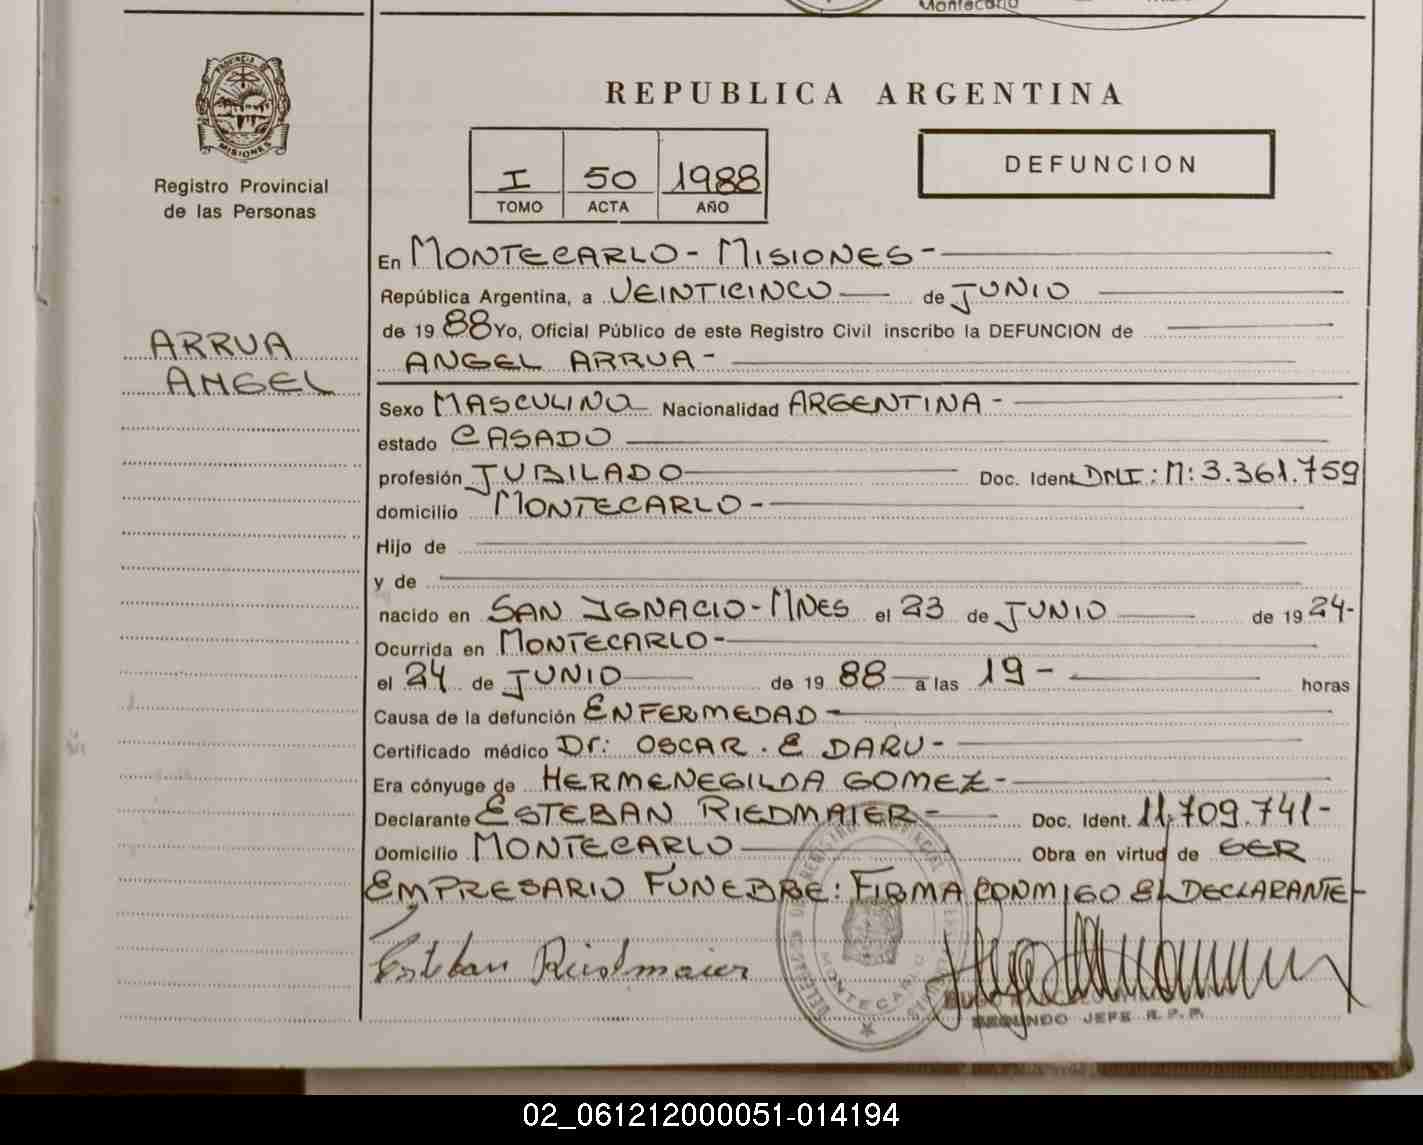 Montecarlo
PROVINCIA D
MISIONES
Registro Provincial
de las Personas
ARRUA
ANGEL
REPUBLICA ARGENTINA
I 50 1988
TOMO ACTA AÑO
DEFUNCION
En MONTECARLO - MISIONES -
República Argentina, a VEINTICINCO de JUNIO
de 1988 Yo, Oficial Público de este Registro Civil inscribo la DEFUNCION de
ANGEL ARRUA -
Sexo MASCULINO Nacionalidad ARGENTINA -
estado CASADO
profesión JUBILADO Doc. Ident. DNI: M: 3.361.759
domicilio MONTECARLO -
Hijo de
y de
nacido en SAN IGNACIO - MNES el 23 de JUNIO de 1924-
Ocurrida en MONTECARLO -
el 24 de JUNIO de 1988 a las 19 - horas
Causa de la defunción ENFERMEDAD -
Certificado médico Dr: OSCAR . E DARU -
Era cónyuge de HERMENEGILDA GOMEZ -
Declarante ESTEBAN RIEDMAIER - Doc. Ident. 11.709.741 -
Domicilio MONTECARLO Obra en virtud de SER
EMPRESARIO FUNEBRE: FIRMA CONMIGO EL DECLARANTE -
Esteban Riedmaier
MONTECARLO
SEGUNDO JEFE R.P.P.
02_061212000051-014194